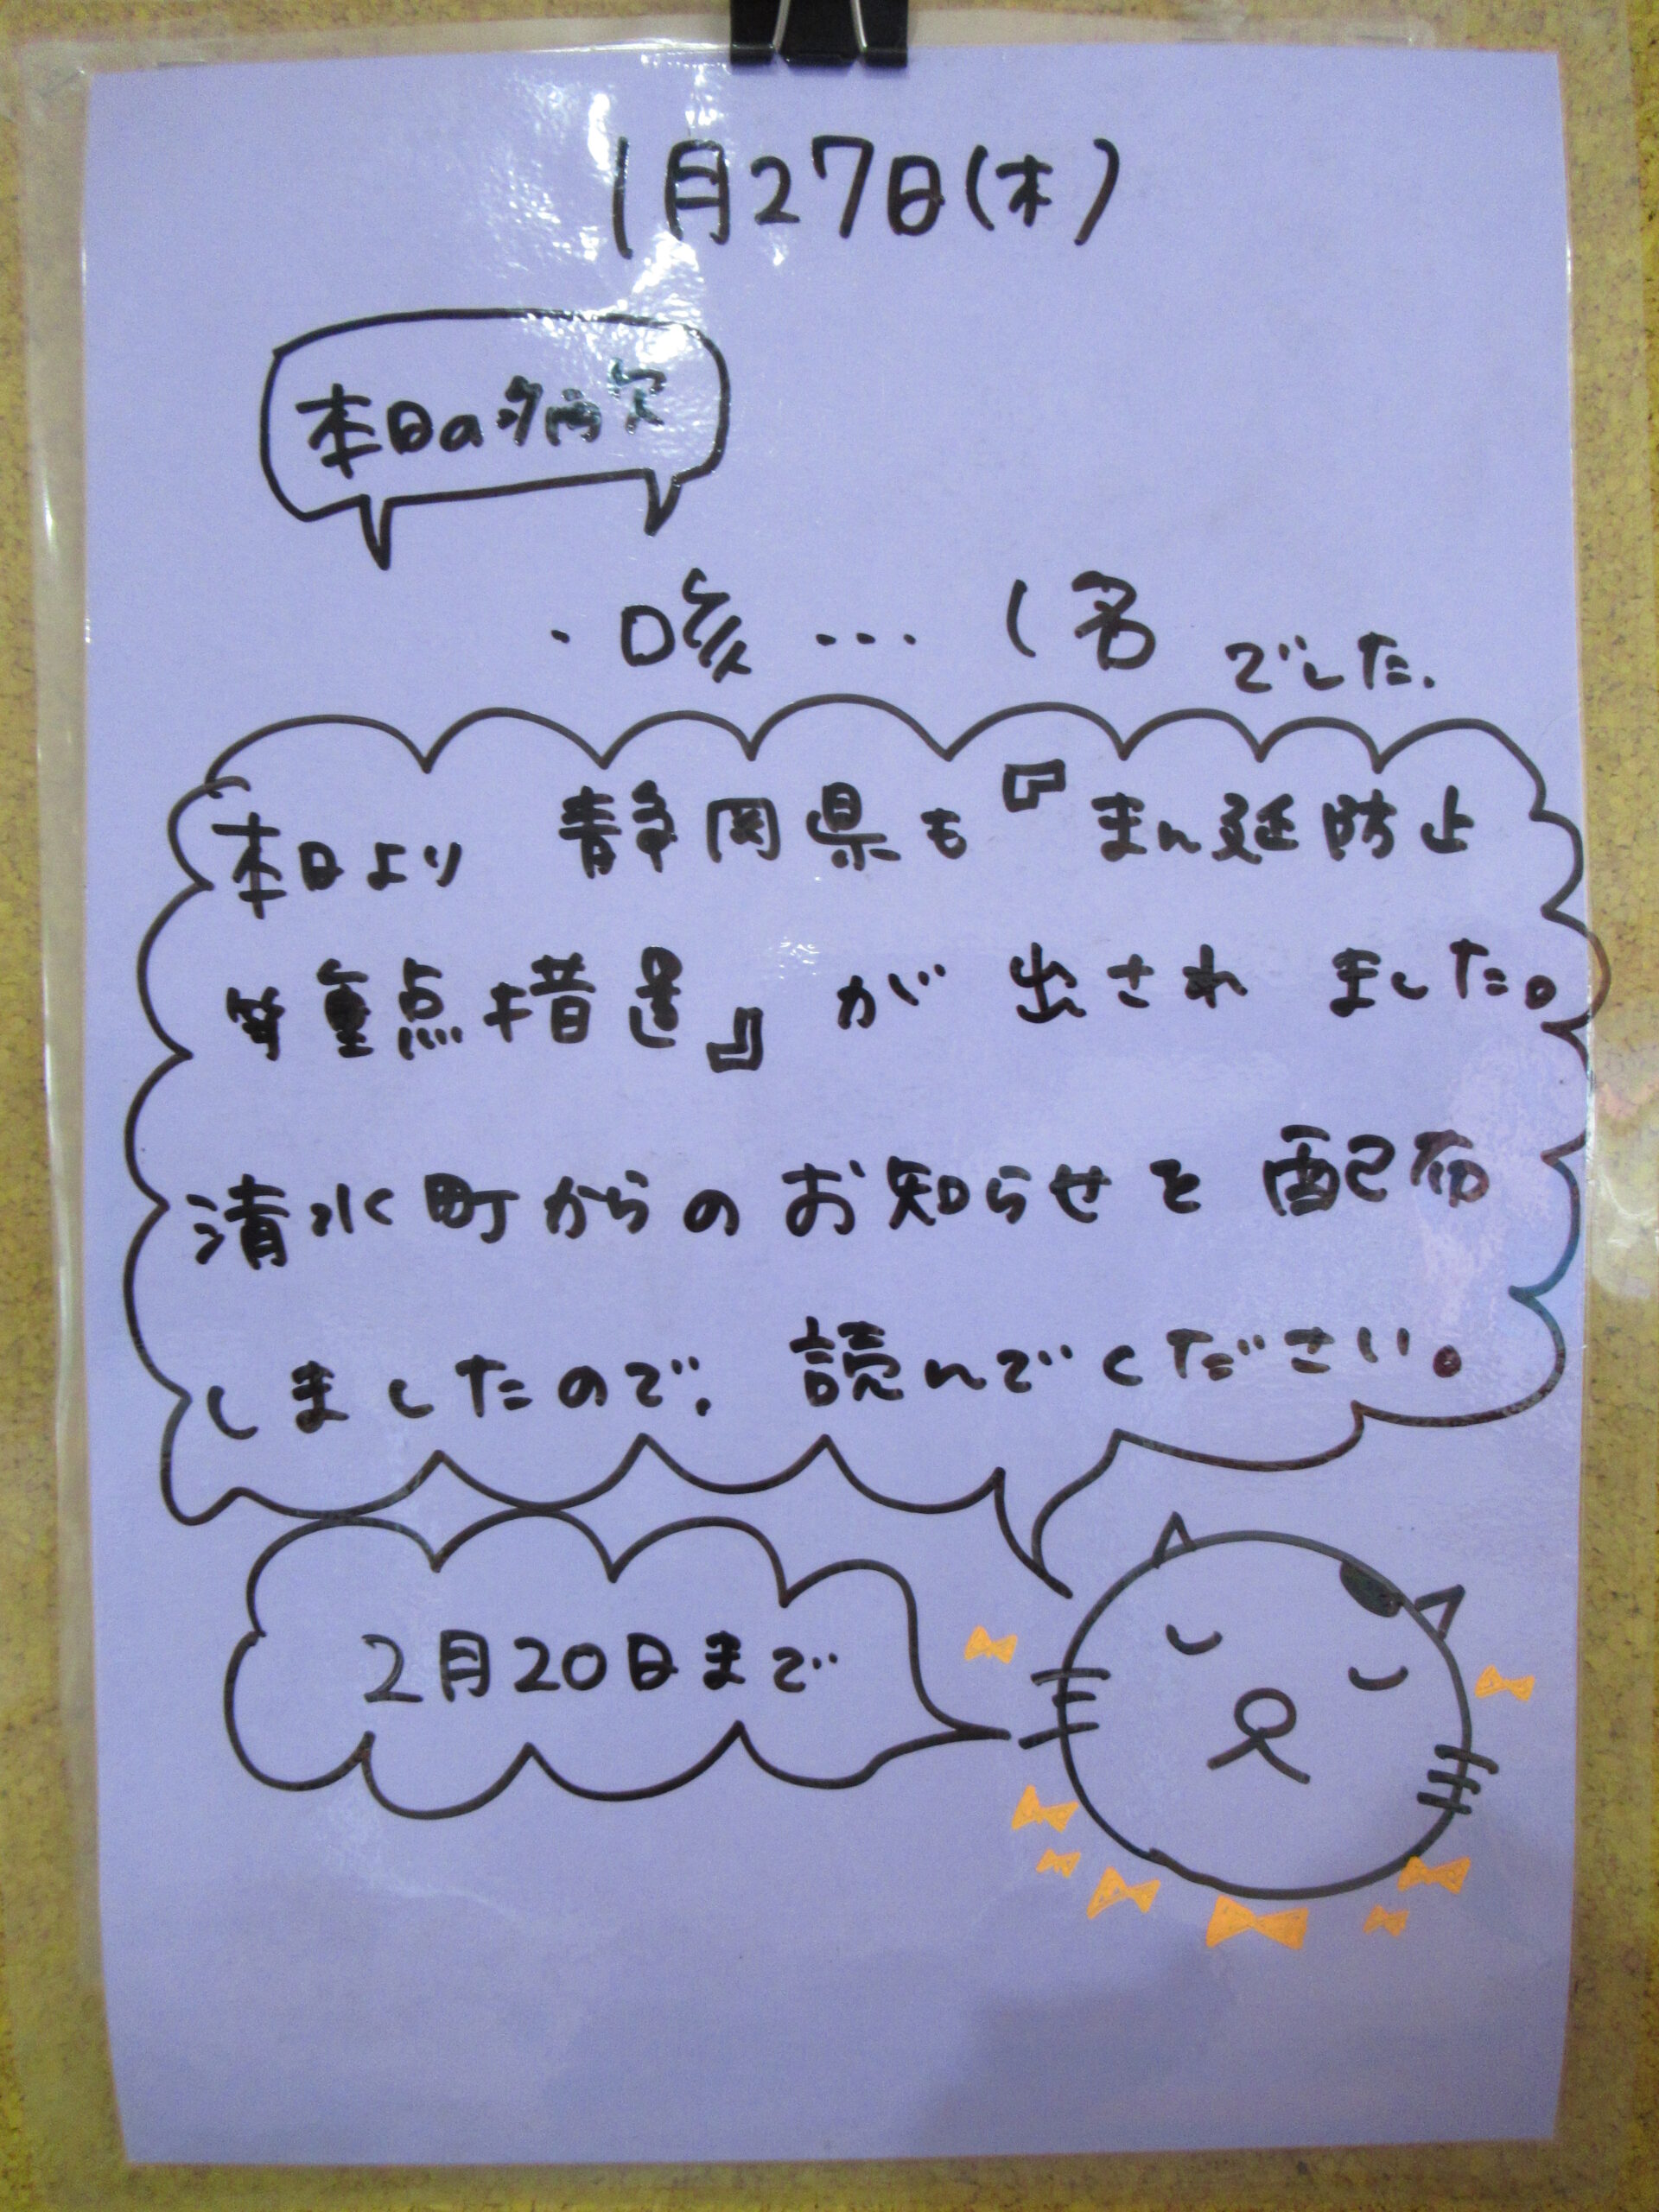 1月27日(木)
本日の病欠
・咳… 1名 でした.
本日より 静岡県も『まん延防止
等重点措置』が 出されました。
清水町からのお知らせを配布
しましたので、読んでください。
2月20日まで